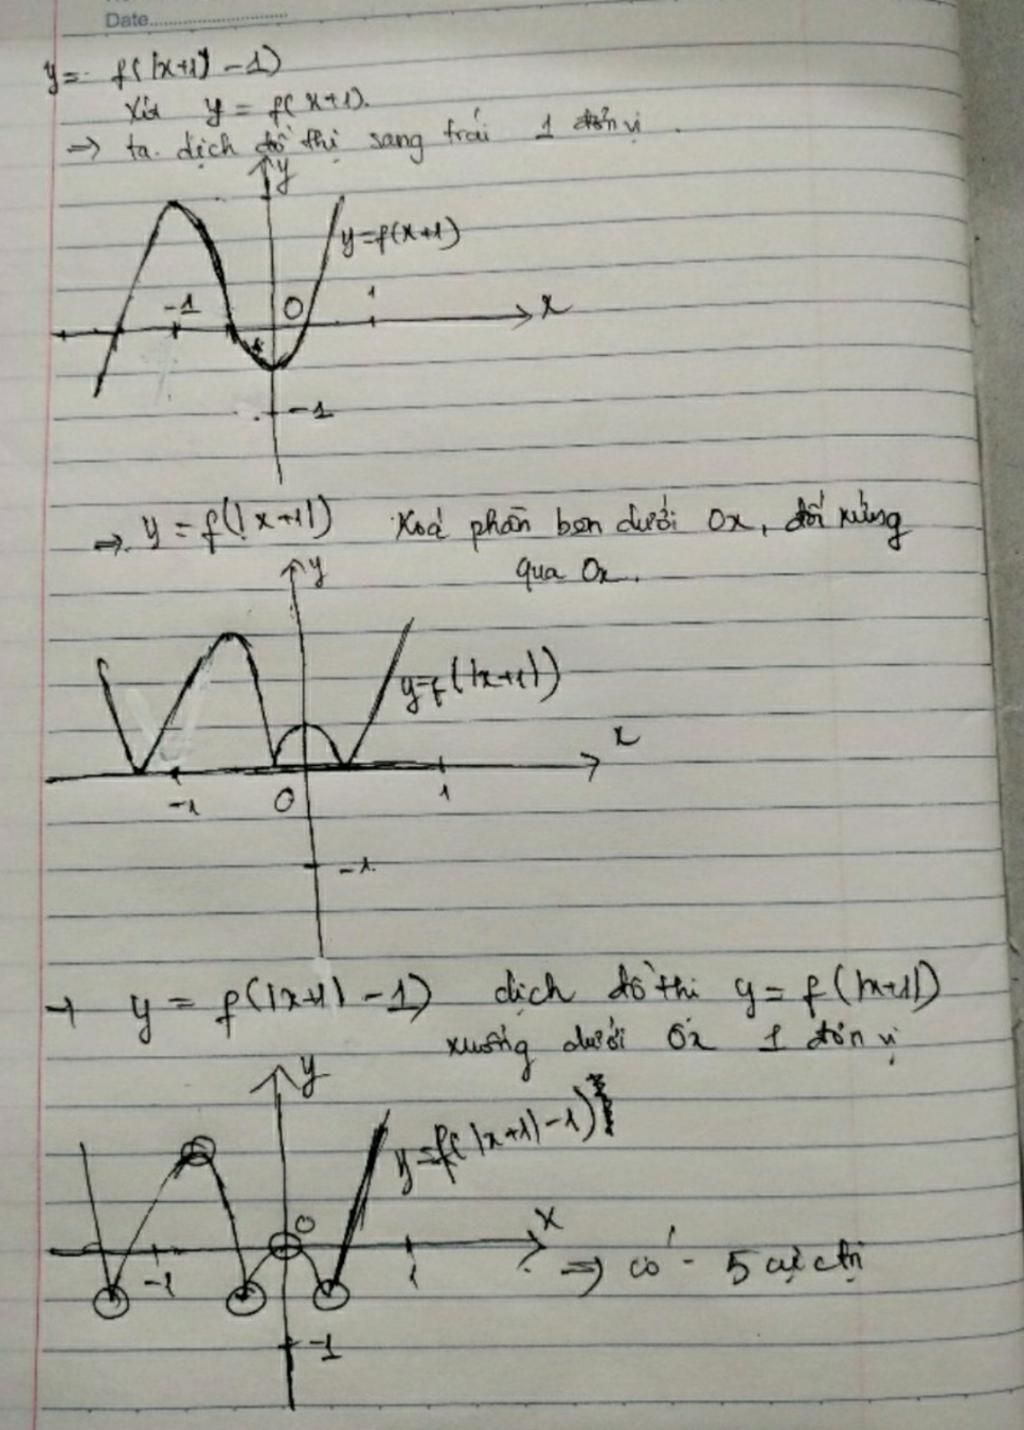 Date
y = f(|x+1| - 1)
Xét y = f(x+1).
=> ta dịch đồ thị sang trái 1 đơn vị.
y
y=f(x+1)
-1 0 1 x
-1
=> y = f(|x+1|) Xoá phần bên dưới Ox, đối xứng
qua Ox.
y
y=f(|x+1|)
x
-1 0 1
-1
→ y = f(|x+1| - 1) dịch đồ thị y = f(|x+1|)
xuống dưới Ox 1 đơn vị
y
y=f(|x+1|-1)
0 x
-1 1 => có 5 cực trị
-1